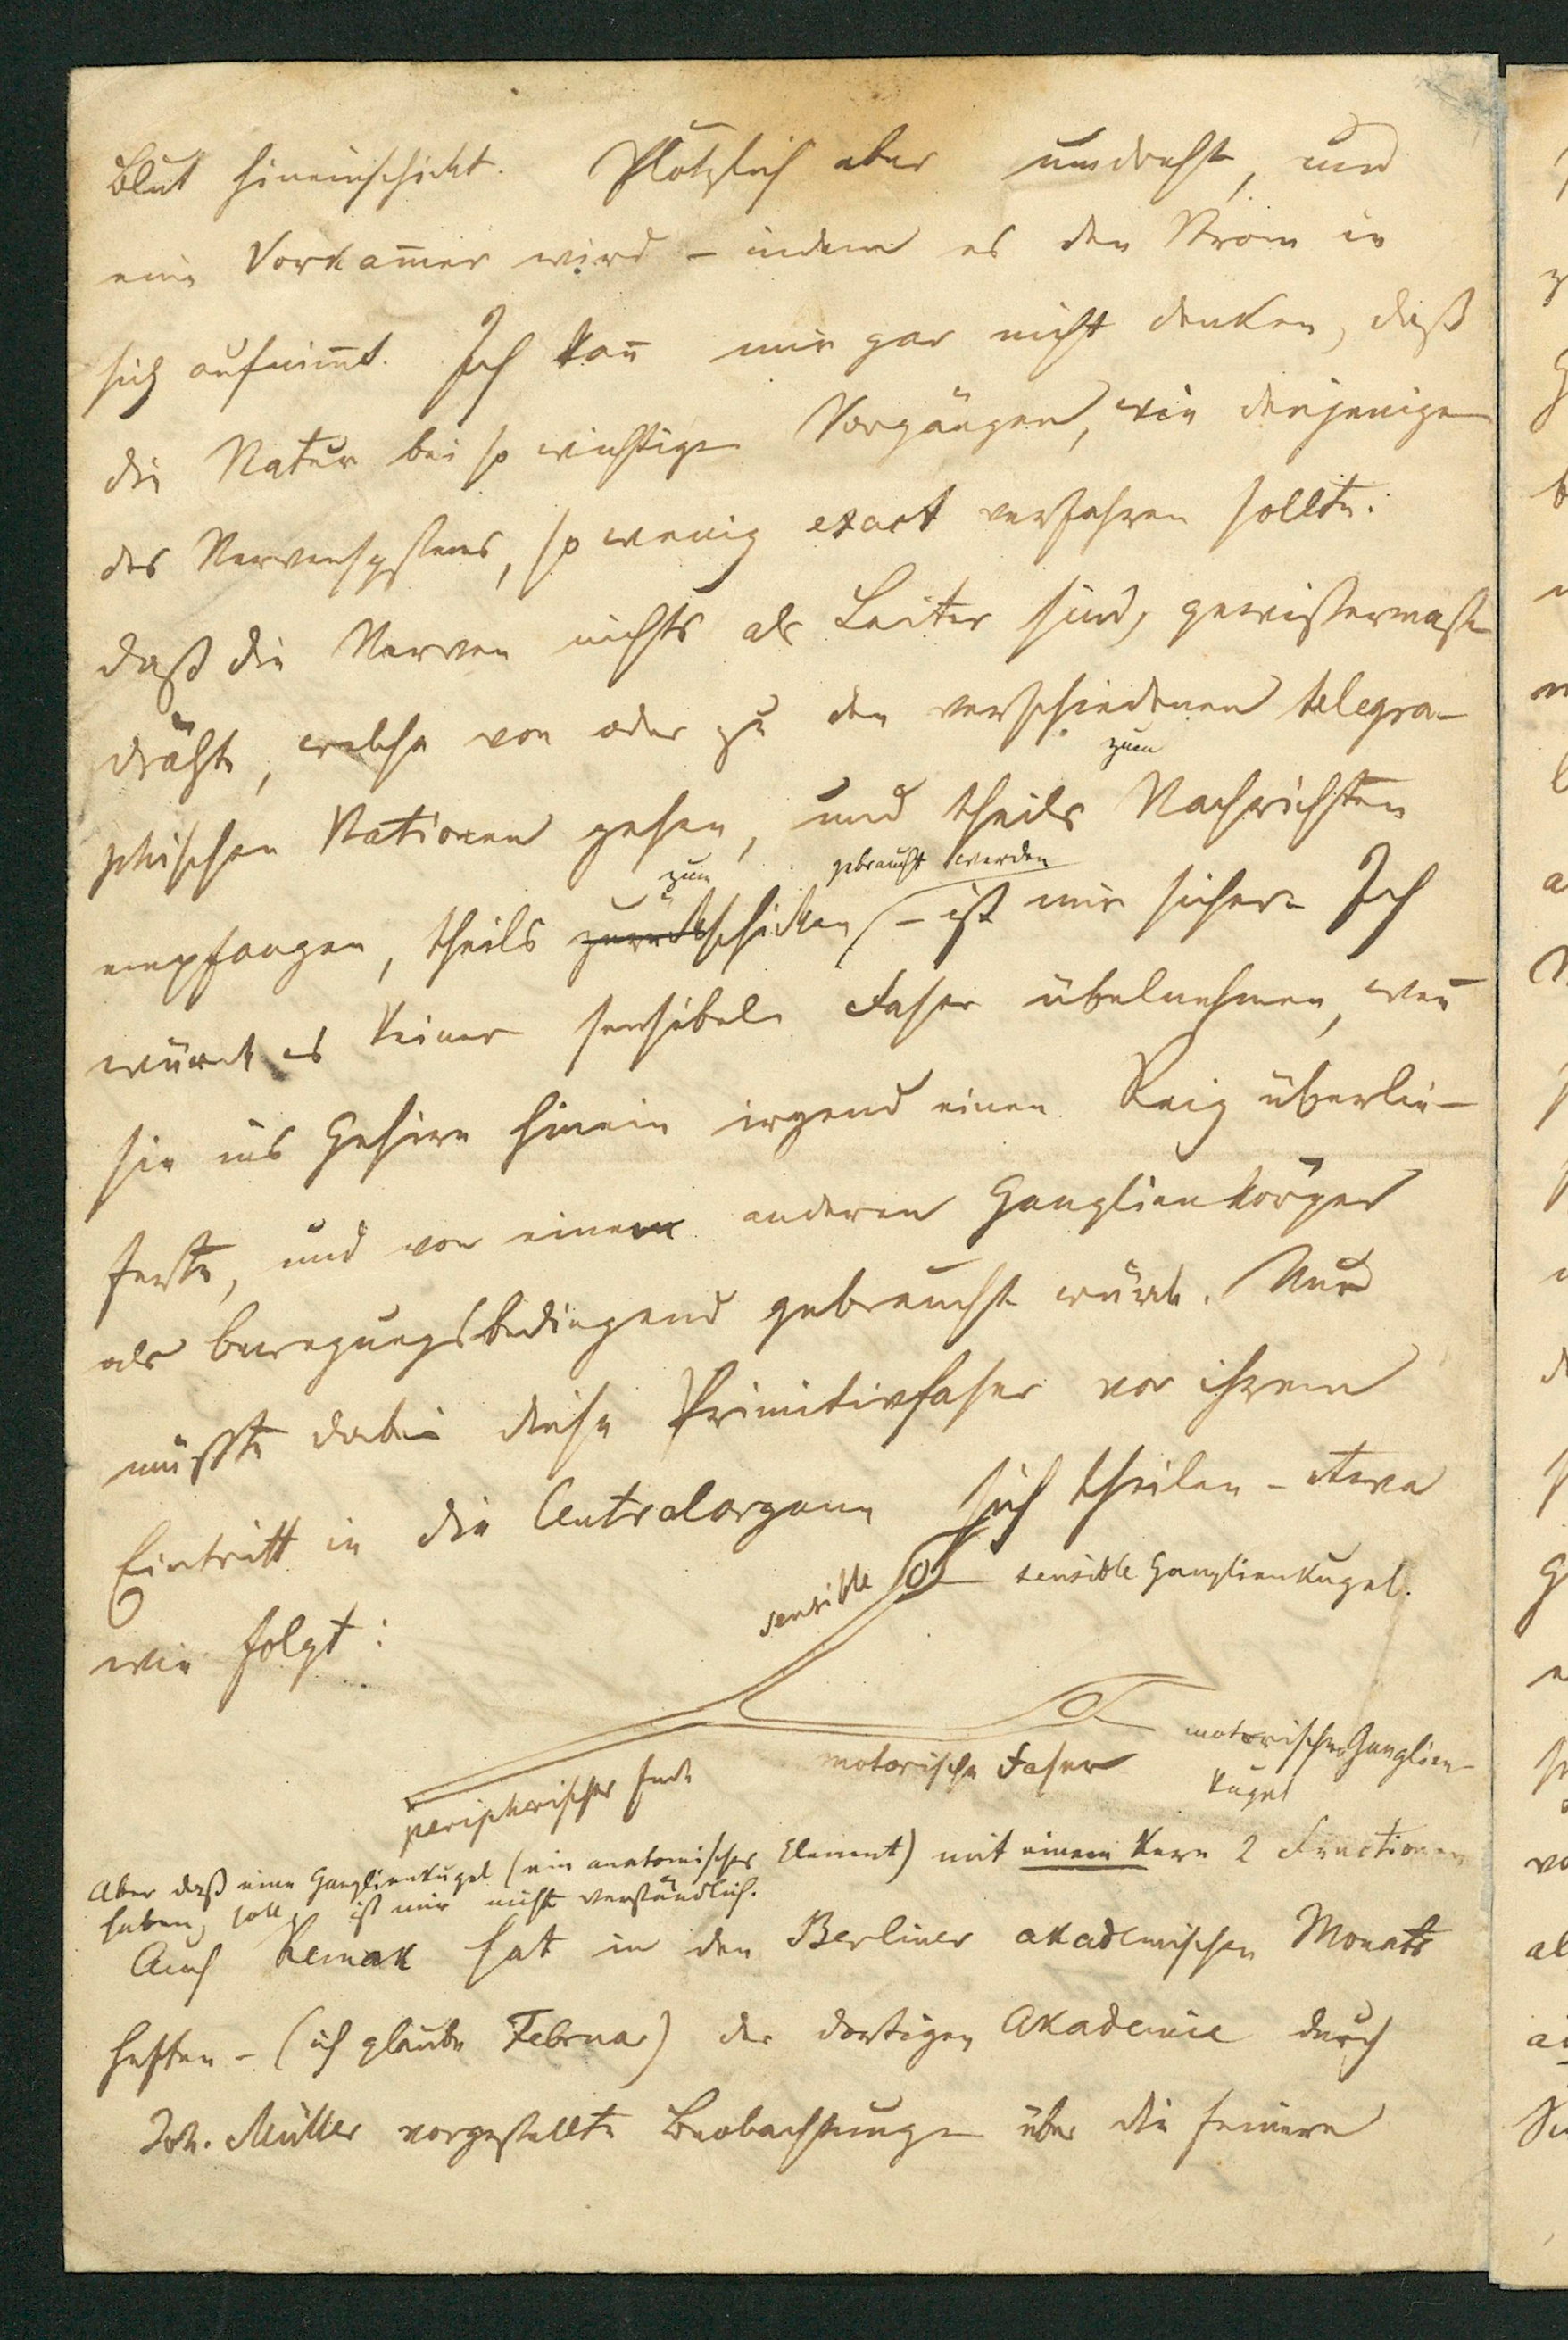 Blut hineinschickt. Plötzlich aber umdreht, und
eine Vorkam̄er wird – indem es den Strom in
sich aufnim̄t. Ich kan̄ mir gar nicht denken, daß
die Natur bei so wichtigen Vorgängen, wie denjenigen
des Nervensystems, so wenig exact verfahren sollte.
daß die Nerven nichts als Leiter sind, gewissermaßen
drähte, welche von oder zu den verschiedenen telegra-
phischen Stationen gehen, und theils zum Nachrichten
empfangen, theils zurück zum schicken gebraucht werden – ist mir sicher. Ich
würde es keiner sensibeln Faser übelnehmen, wen̄
sie ins Gehirn hinein irgend einen Reiz überlie-
ferte, und von einem anderen Ganglienkörper
als bewegungsbedingend gebraucht würde. Nur
müßte dabei diese Primitivfaser vor ihrem
Eintritt in die Centralorgane sich theilen – etwa
wie folgt:
sensible
sensible Ganglienkugel.
motorische Ganglien-
kugel
motorische Faser
peripherisches Ende
Aber daß eine Ganglienkugel (ein anatomisches Element) mit einem Kern 2 Functionen
haben, soll, ist mir nicht verständlich.
Auch Remak hat in den Berliner akademischen Monats
heften – (ich glaube Februar) der dortigen Akademie durch
Joh. Müller vorgestellte Beobachtungen über die feinere